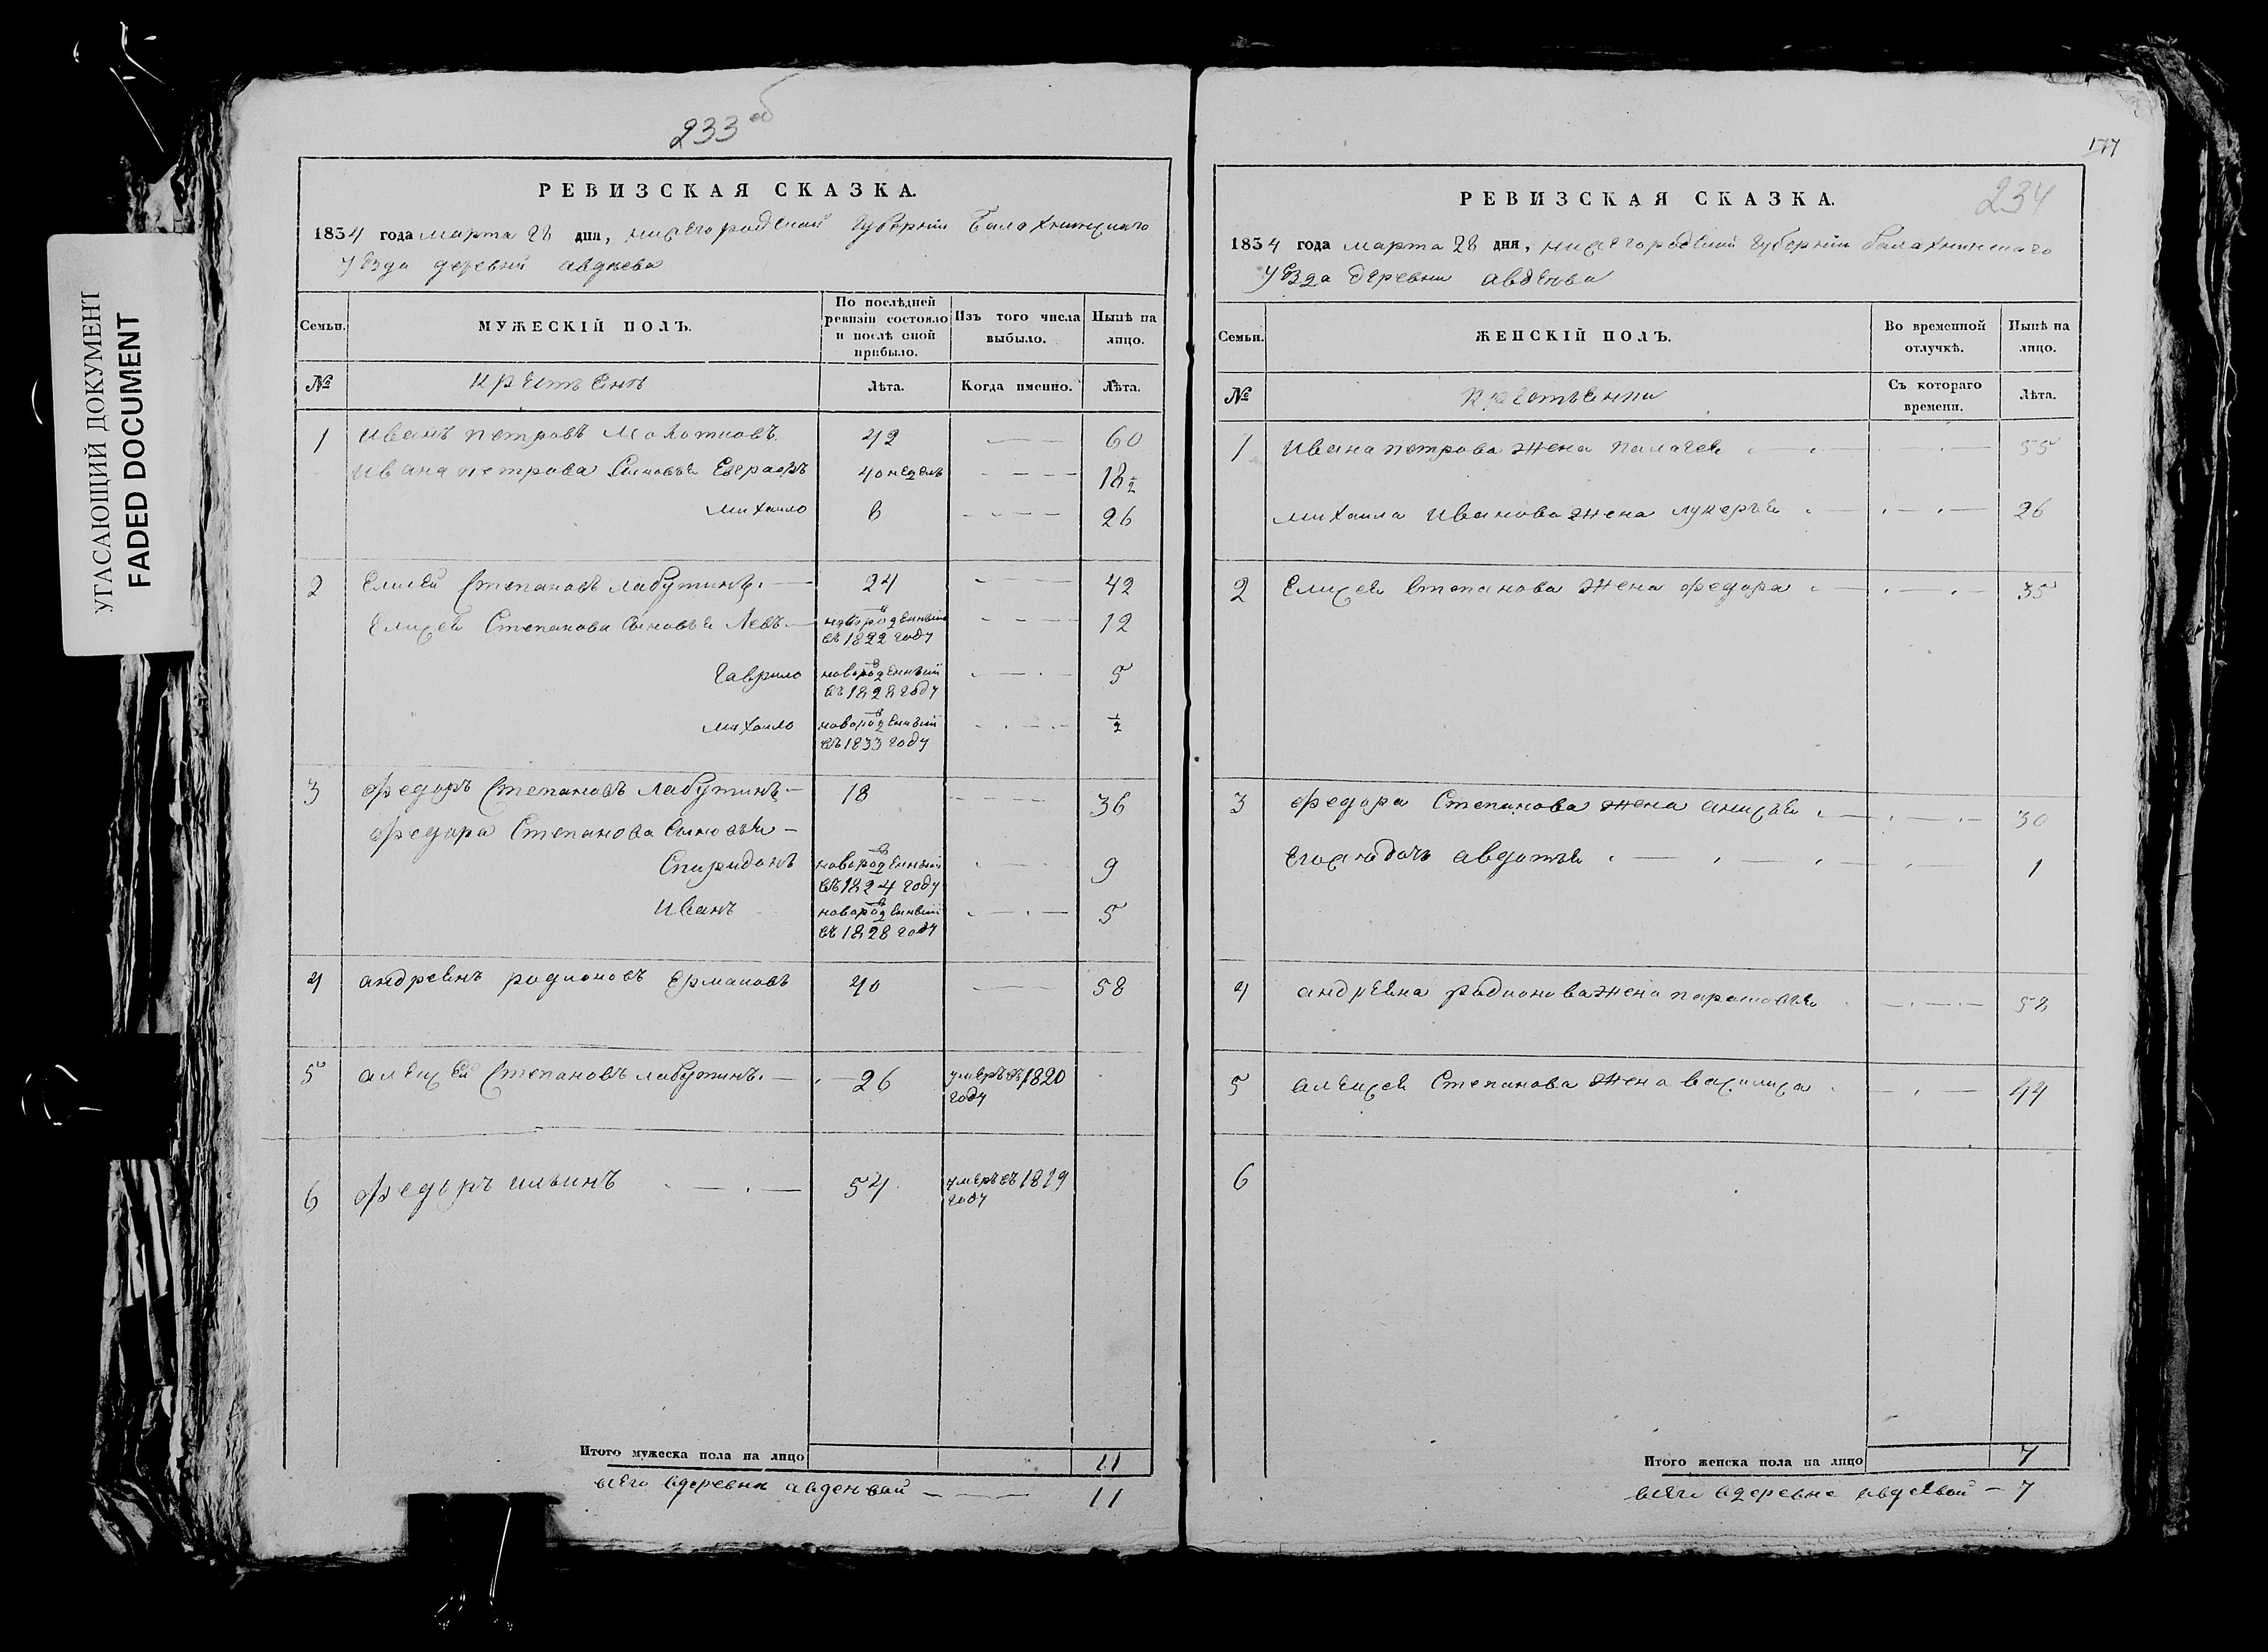 УГАСАЮЩИЙ ДОКУМЕНТ
FADED DOCUMENT
233 об
РЕВИЗСКАЯ СКАЗКА.
1834 года марта 28 дня, нижегородской губернии Балахнинскаго
уезда деревни авдеева
Семьи. МУЖЕСКІЙ ПОЛЪ. По послѣдней ревизіи состояло и послѣ оной прибыло. Изъ того числа выбыло. Нынѣ на лицо.
№ крестьянъ Лѣта. Когда именно. Лѣта.
1 иванъ петровъ 42 60
ивана петрова сыновья 40 недель 18 1/2
михаило 8 26
2 Елисей Степановъ лабутинъ. 24 42
Елисея Степанова сыновья Левъ новорожденный въ 1822 году 12
гаврило новорожденный въ 1828 году 5
михаило новорожденный въ 1833 году 1/2
3 федоръ Степановъ лабутинъ 18 36
федора Степанова сыновья
Спиридонъ новорожденный въ 1824 году 9
иванъ новорожденный въ 1828 году 5
4 андреянъ родионовъ 40 58
5 алексей Степановъ лабутинъ. 26 умеръ въ 1820 году
6 федоръ ильинъ 54 умеръ въ 1819 году
Итого мужеска пола на лицо 11
всего вдеревни авдеевой 11
177
234
РЕВИЗСКАЯ СКАЗКА.
1834 года марта 28 дня, нижегородской губернии балахнинскаго
уезда деревни авдеева
Семьи. ЖЕНСКІЙ ПОЛЪ. Во временной отлучкѣ. Нынѣ на лицо.
№ крестьянки Съ котораго времени. Лѣта.
1 ивана петрова жена палагея 55
михаила иванова жена лукерья 26
2 Елисея степанова жена федора 35
3 федора Степанова жена анисья 30
Егоже дочь авдотья 1
4 андреяна родионова жена парасковья 58
5 алексея Степанова жена василиса 44
6
Итого женска пола на лицо 7
всего вдеревне авдеевой 7